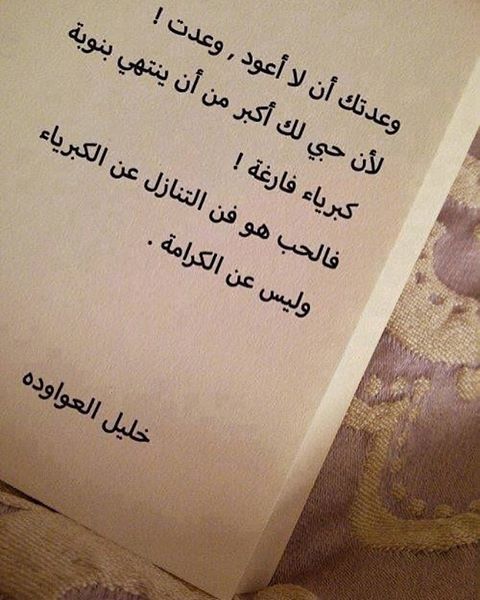 وعدتك أن لا أعود , وعدت !
لأن حبي لك أكبر من أن ينتهي بنوبة
كبرياء فارغة !
فالحب هو فن التنازل عن الكبرياء
وليس عن الكرامة .
خليل العواوده